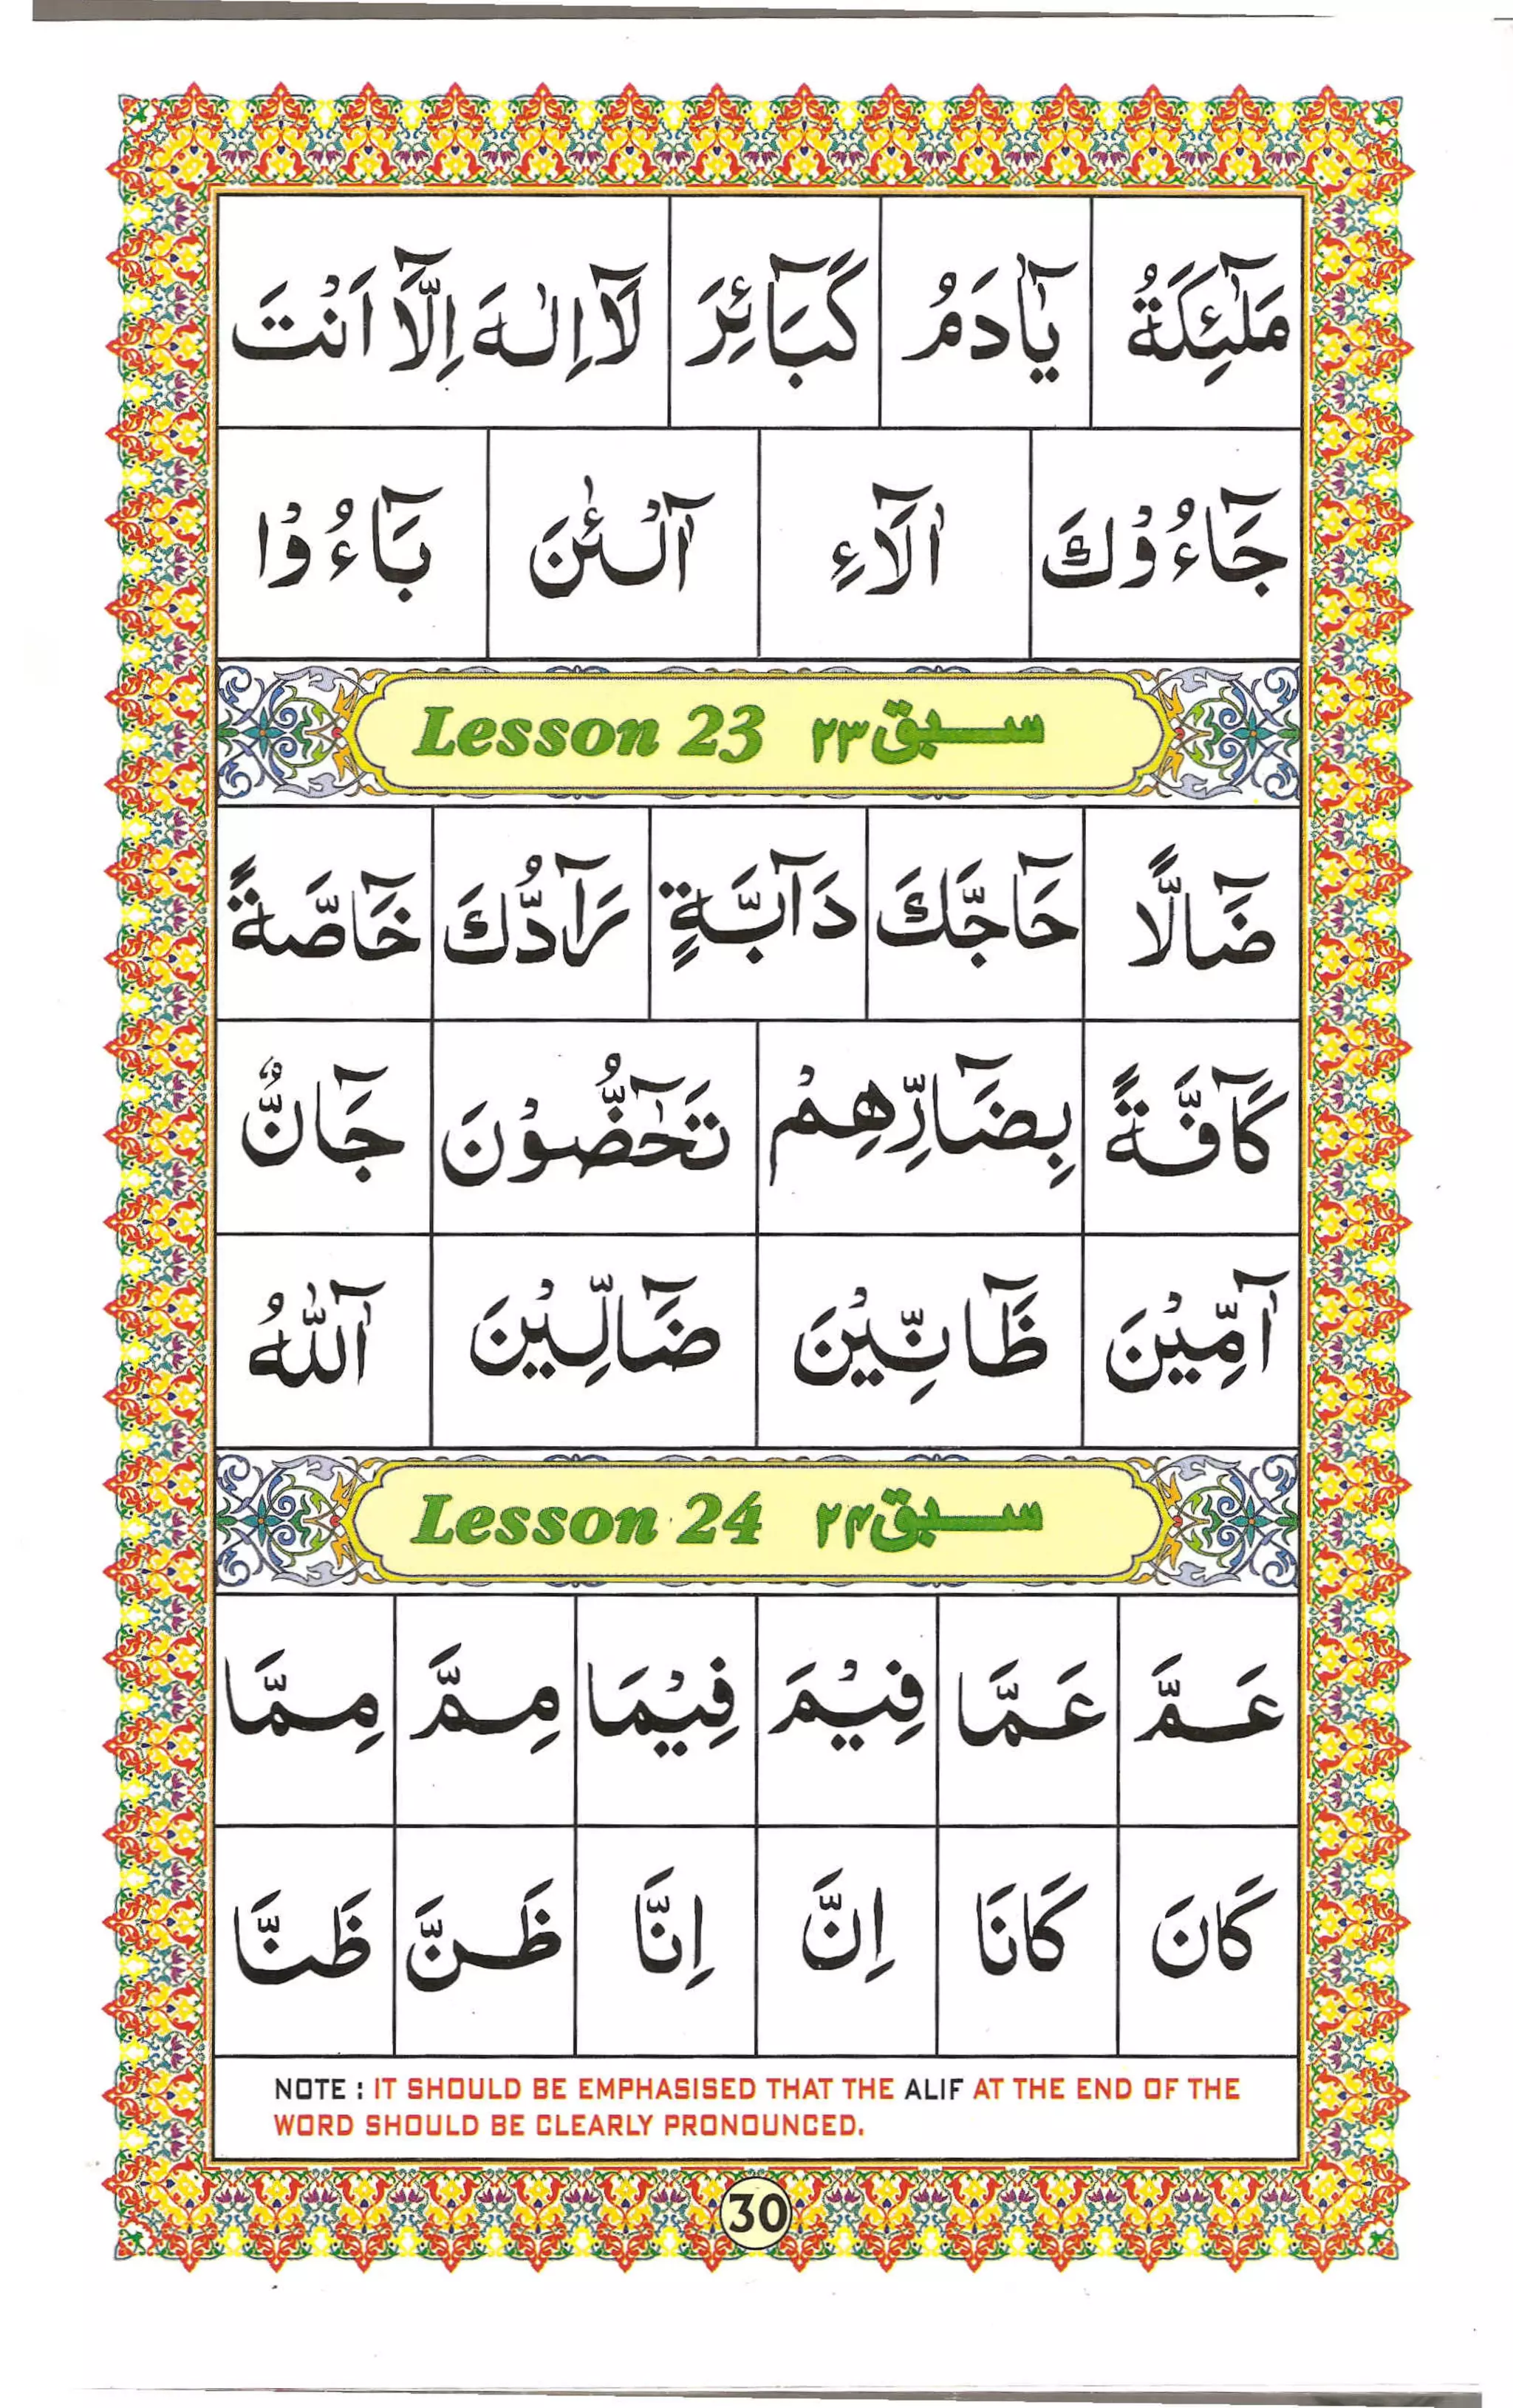 مَلٰٓئِكَةُ يٰٓاٰدَمُ كَبَآئِرَ لَآ اِلٰهَ اِلَّآ اَنْتَ
جَآءُوْكَ اٰلَآءِ آٰلْـٰٔنَ بَآءُوْا
Lesson 23 سبق ۲۳
ضَآلًّا حَآجَّكَ دَآبَّةٍ رَآدُّكَ خَآصَّةً
كَآفَّةً بِضَآرِّهِمْ تَحٰٓضُّوْنَ جَآنٌّ
آٰمِّيْنَ ظَآنِّيْنَ ضَآلِّيْنَ آٰللّٰهُ
Lesson 24 سبق ۲۴
عَمَّ عَمَّا فِيْمَ فِيْمَا مِمَّ مِمَّا
كَانَ كَانَا اِنَّ اِنَّا ظَنَّ ظَنَّا
NOTE : IT SHOULD BE EMPHASISED THAT THE ALIF AT THE END OF THE
WORD SHOULD BE CLEARLY PRONOUNCED.
30